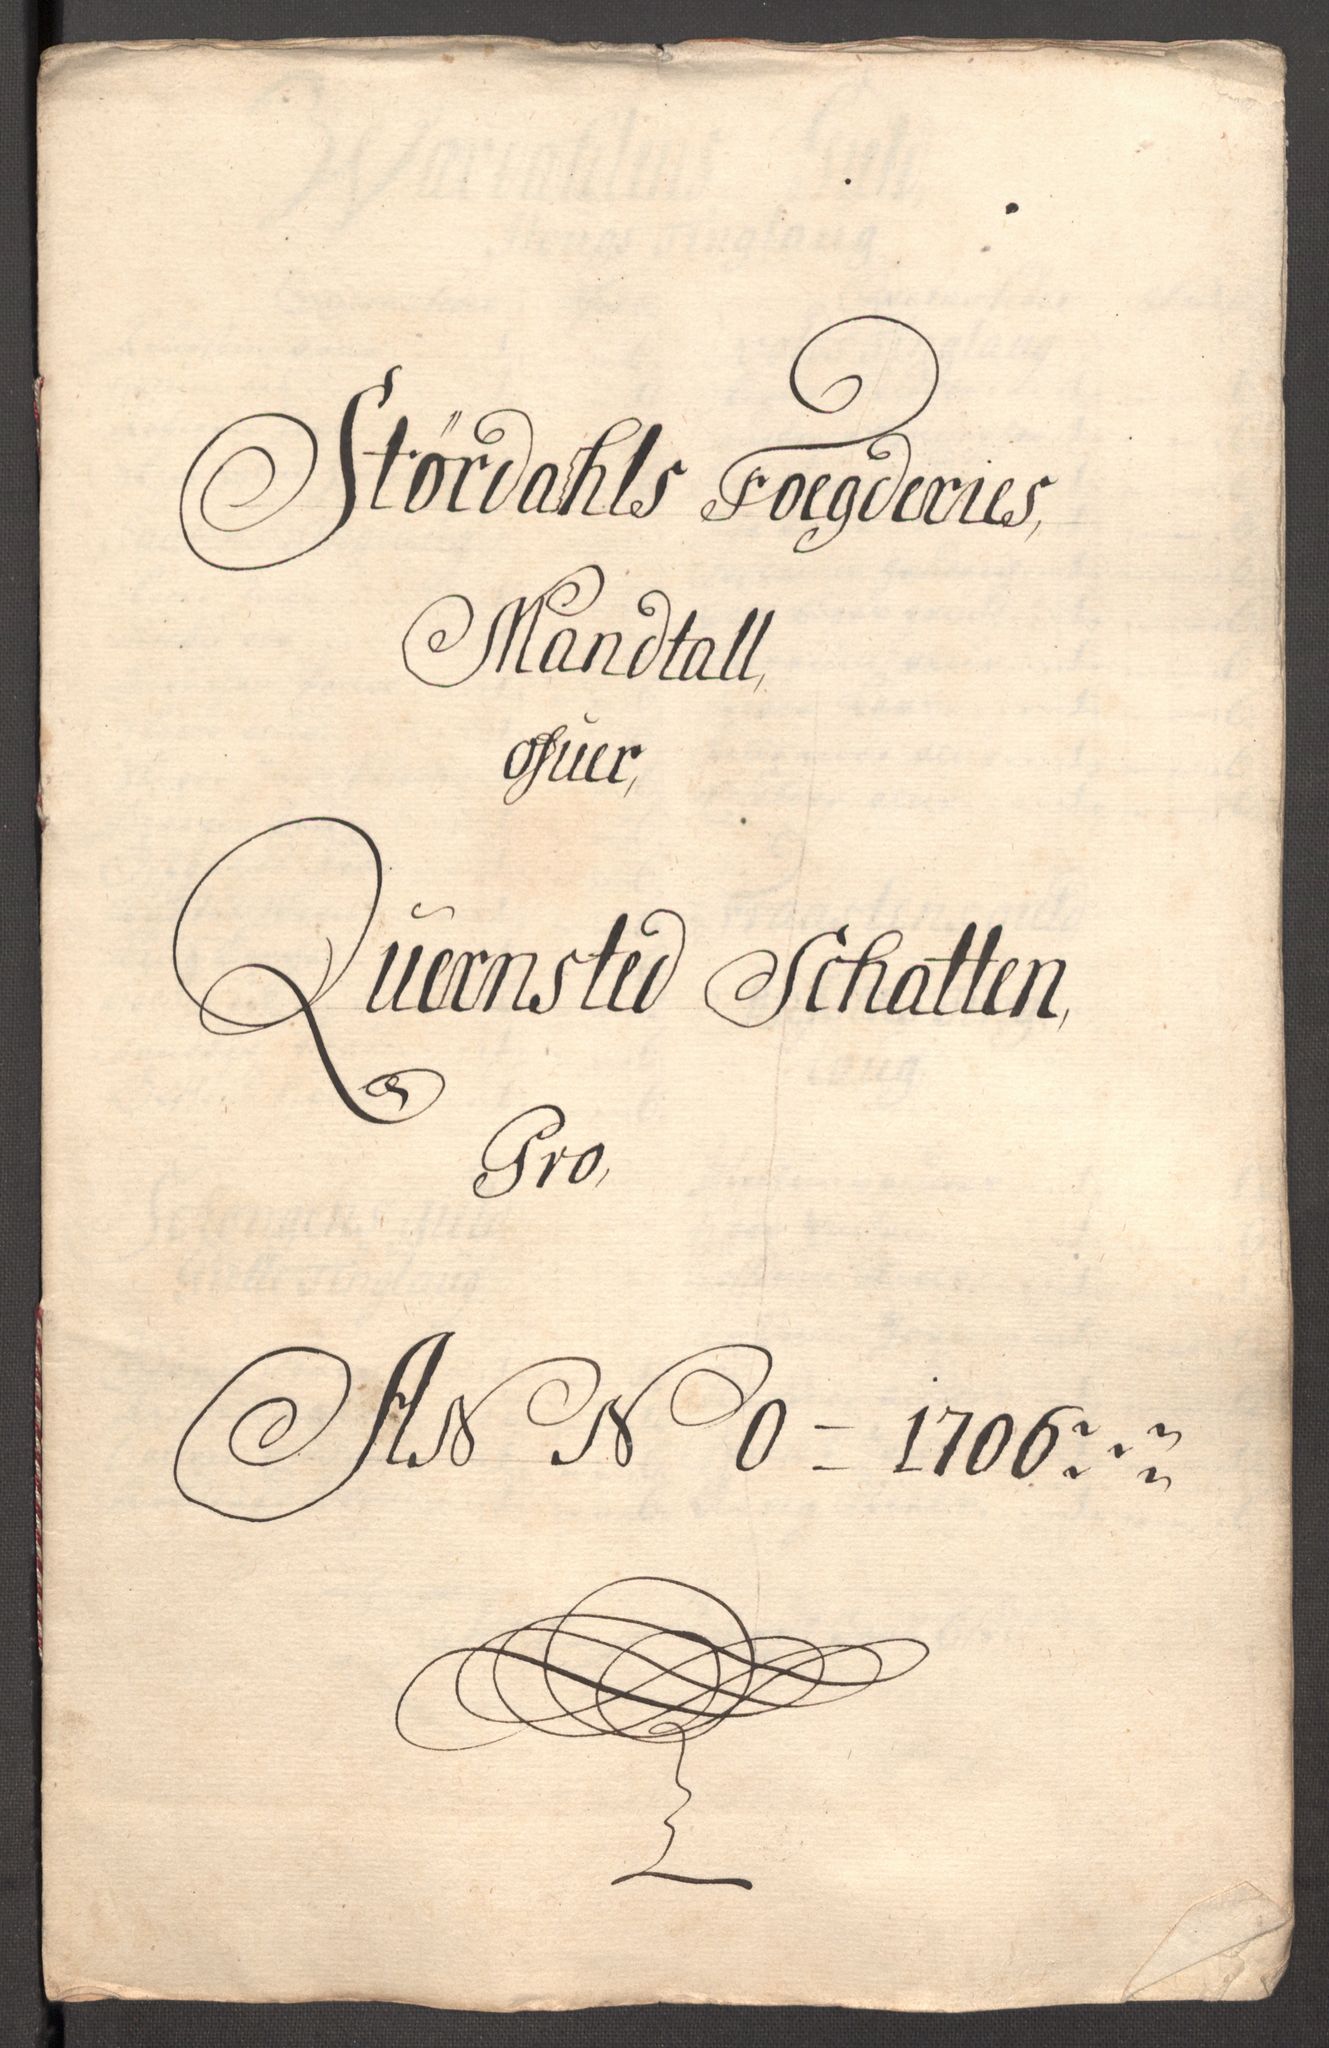 Størdahls Foegderies,
Mandtall,
ofuer,
Quernsted Schatten,
Pro,
ANNO = 1706